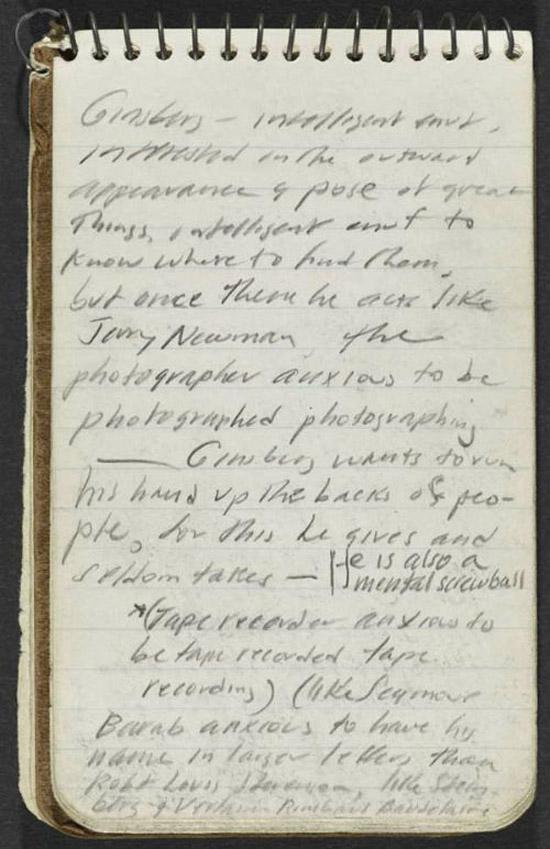 Ginsberg — intelligent enuf,
interested in the outward
appearance & pose of great
things, intelligent enuf to
know where to find them,
but once there he acts like
Jerry Newman the
photographer anxious to be
photographed photographing
— Ginsberg wants to run
his hand up the backs of peo-
ple, for this he gives and
seldom takes — He is also a
mental screwball
*(Tape recorder anxious to
be tape recorded tape
recording) (like Seymour
Barab anxious to have his
name in larger letters than
Robt Louis Stevenson, like Steins-
berg & Verlaine Rimbaud Baudelaire